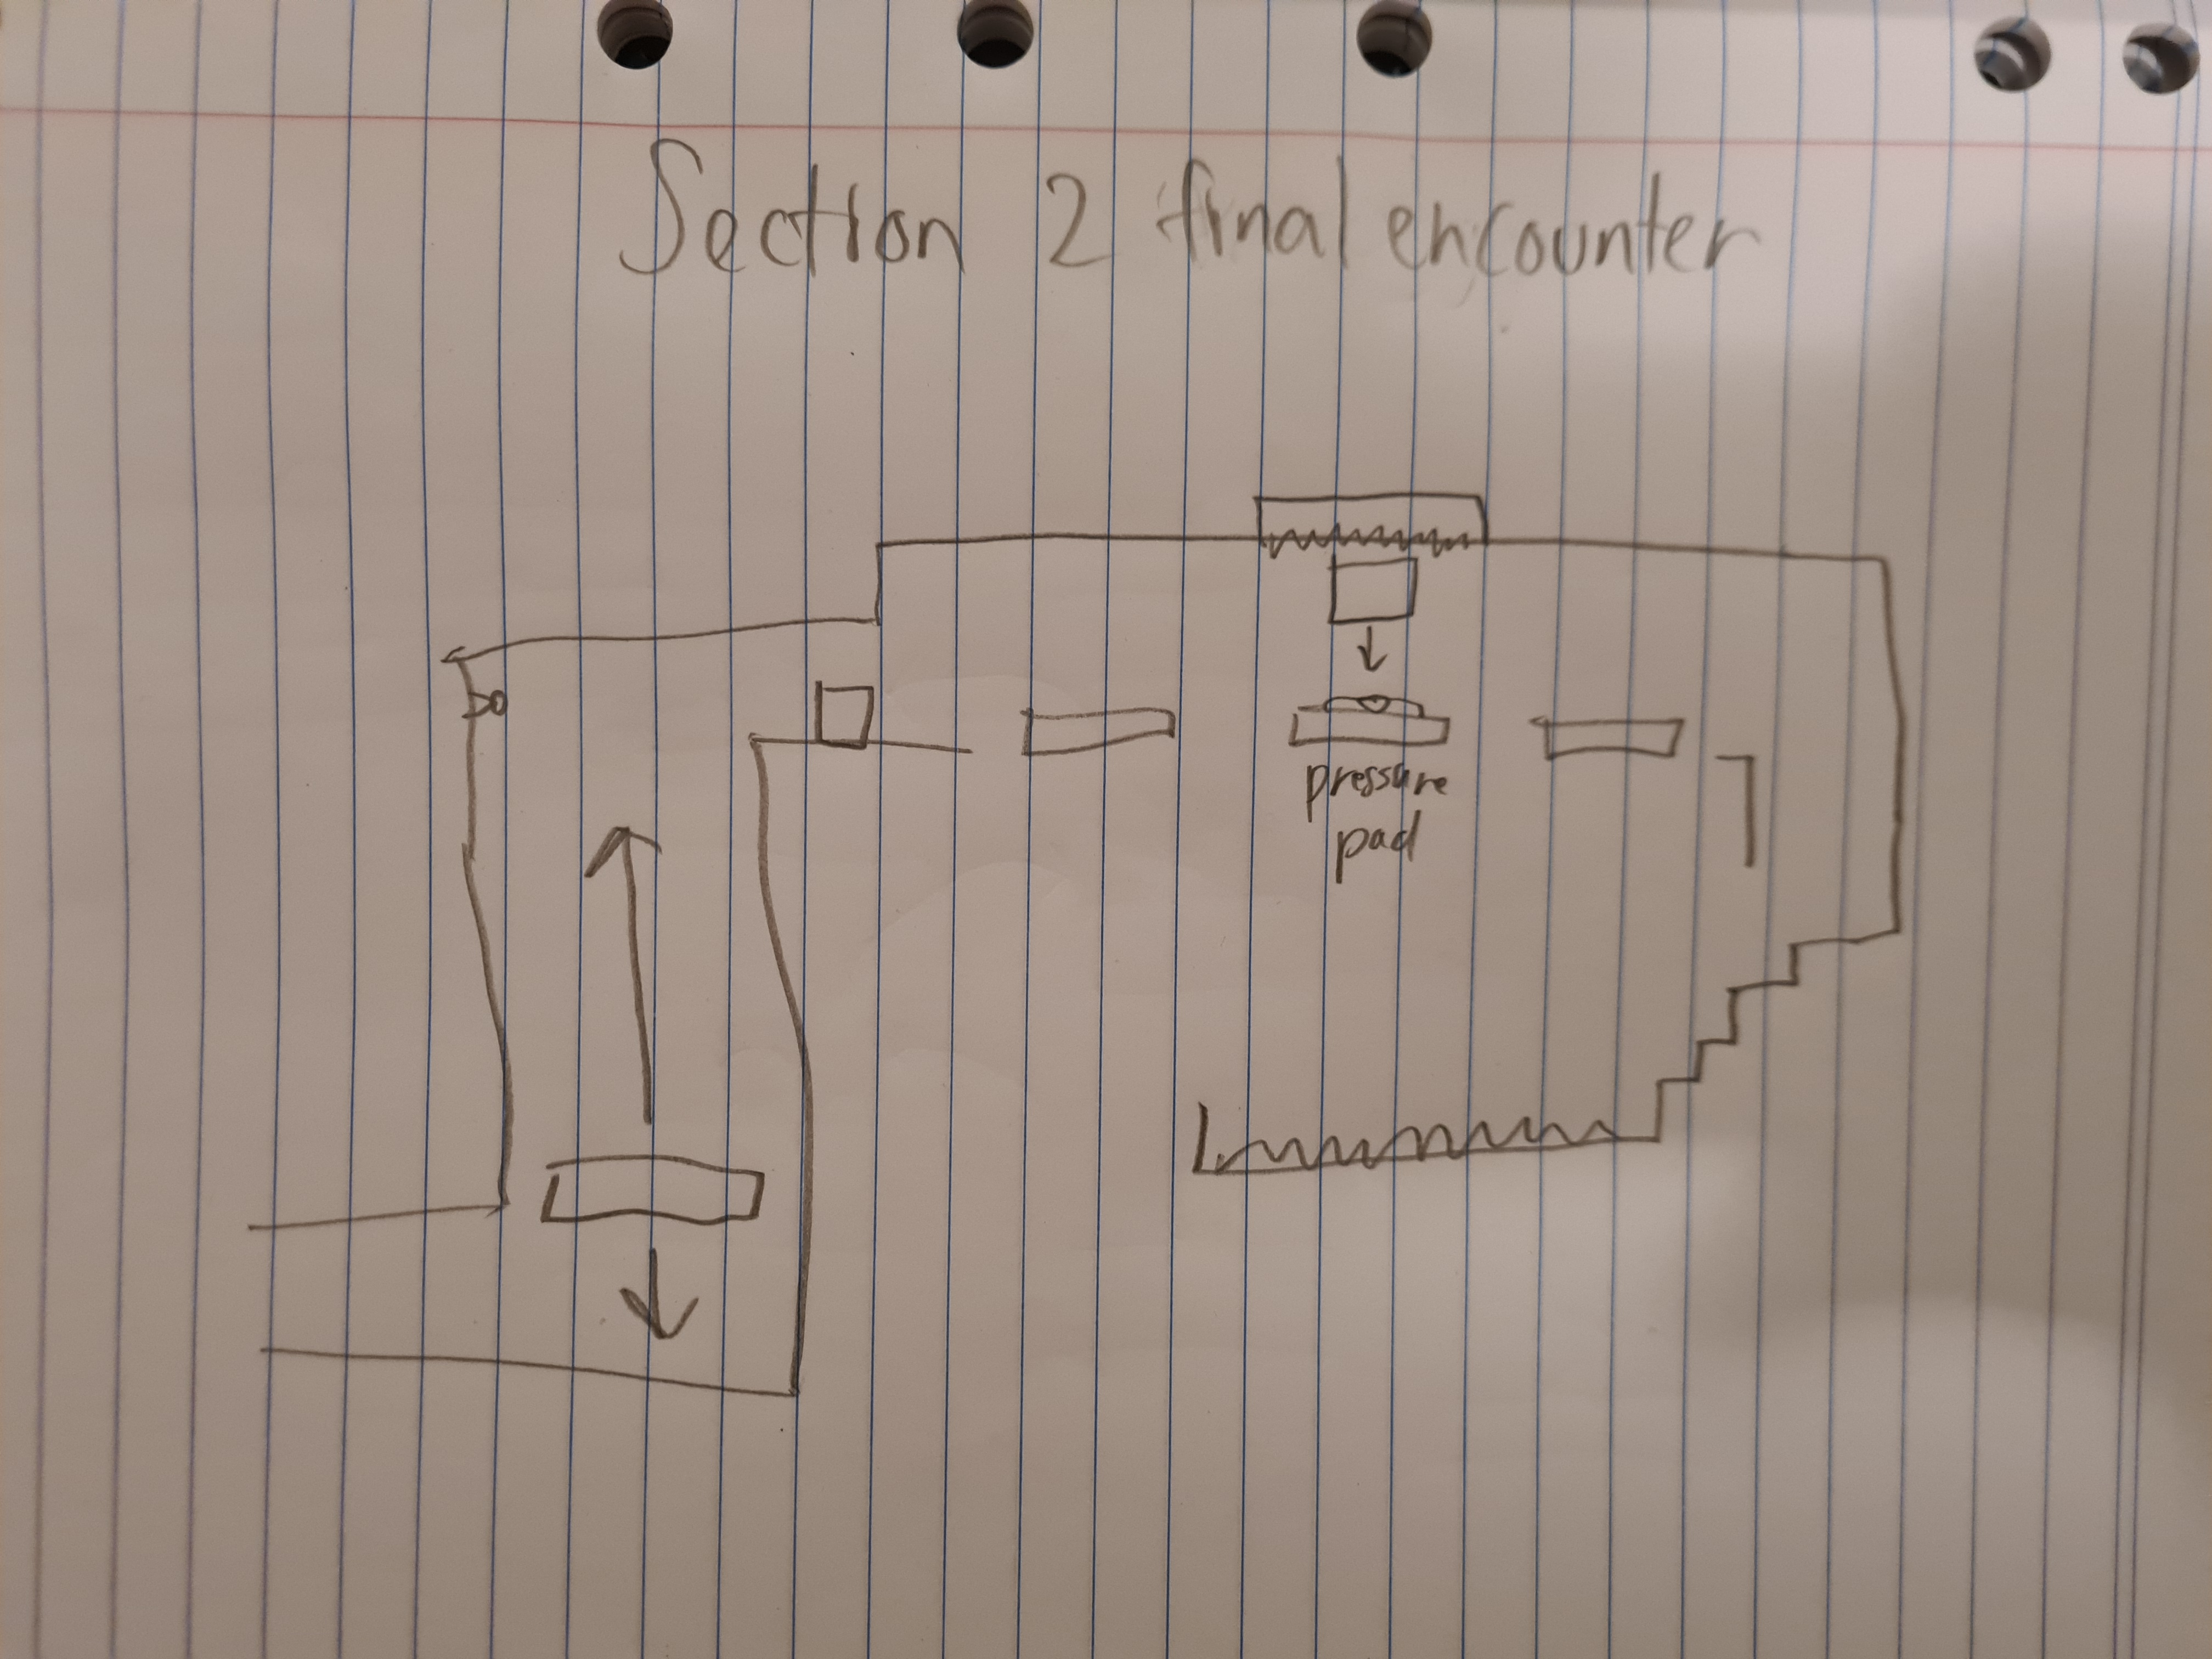 Section 2 final encounter
pressure
pad